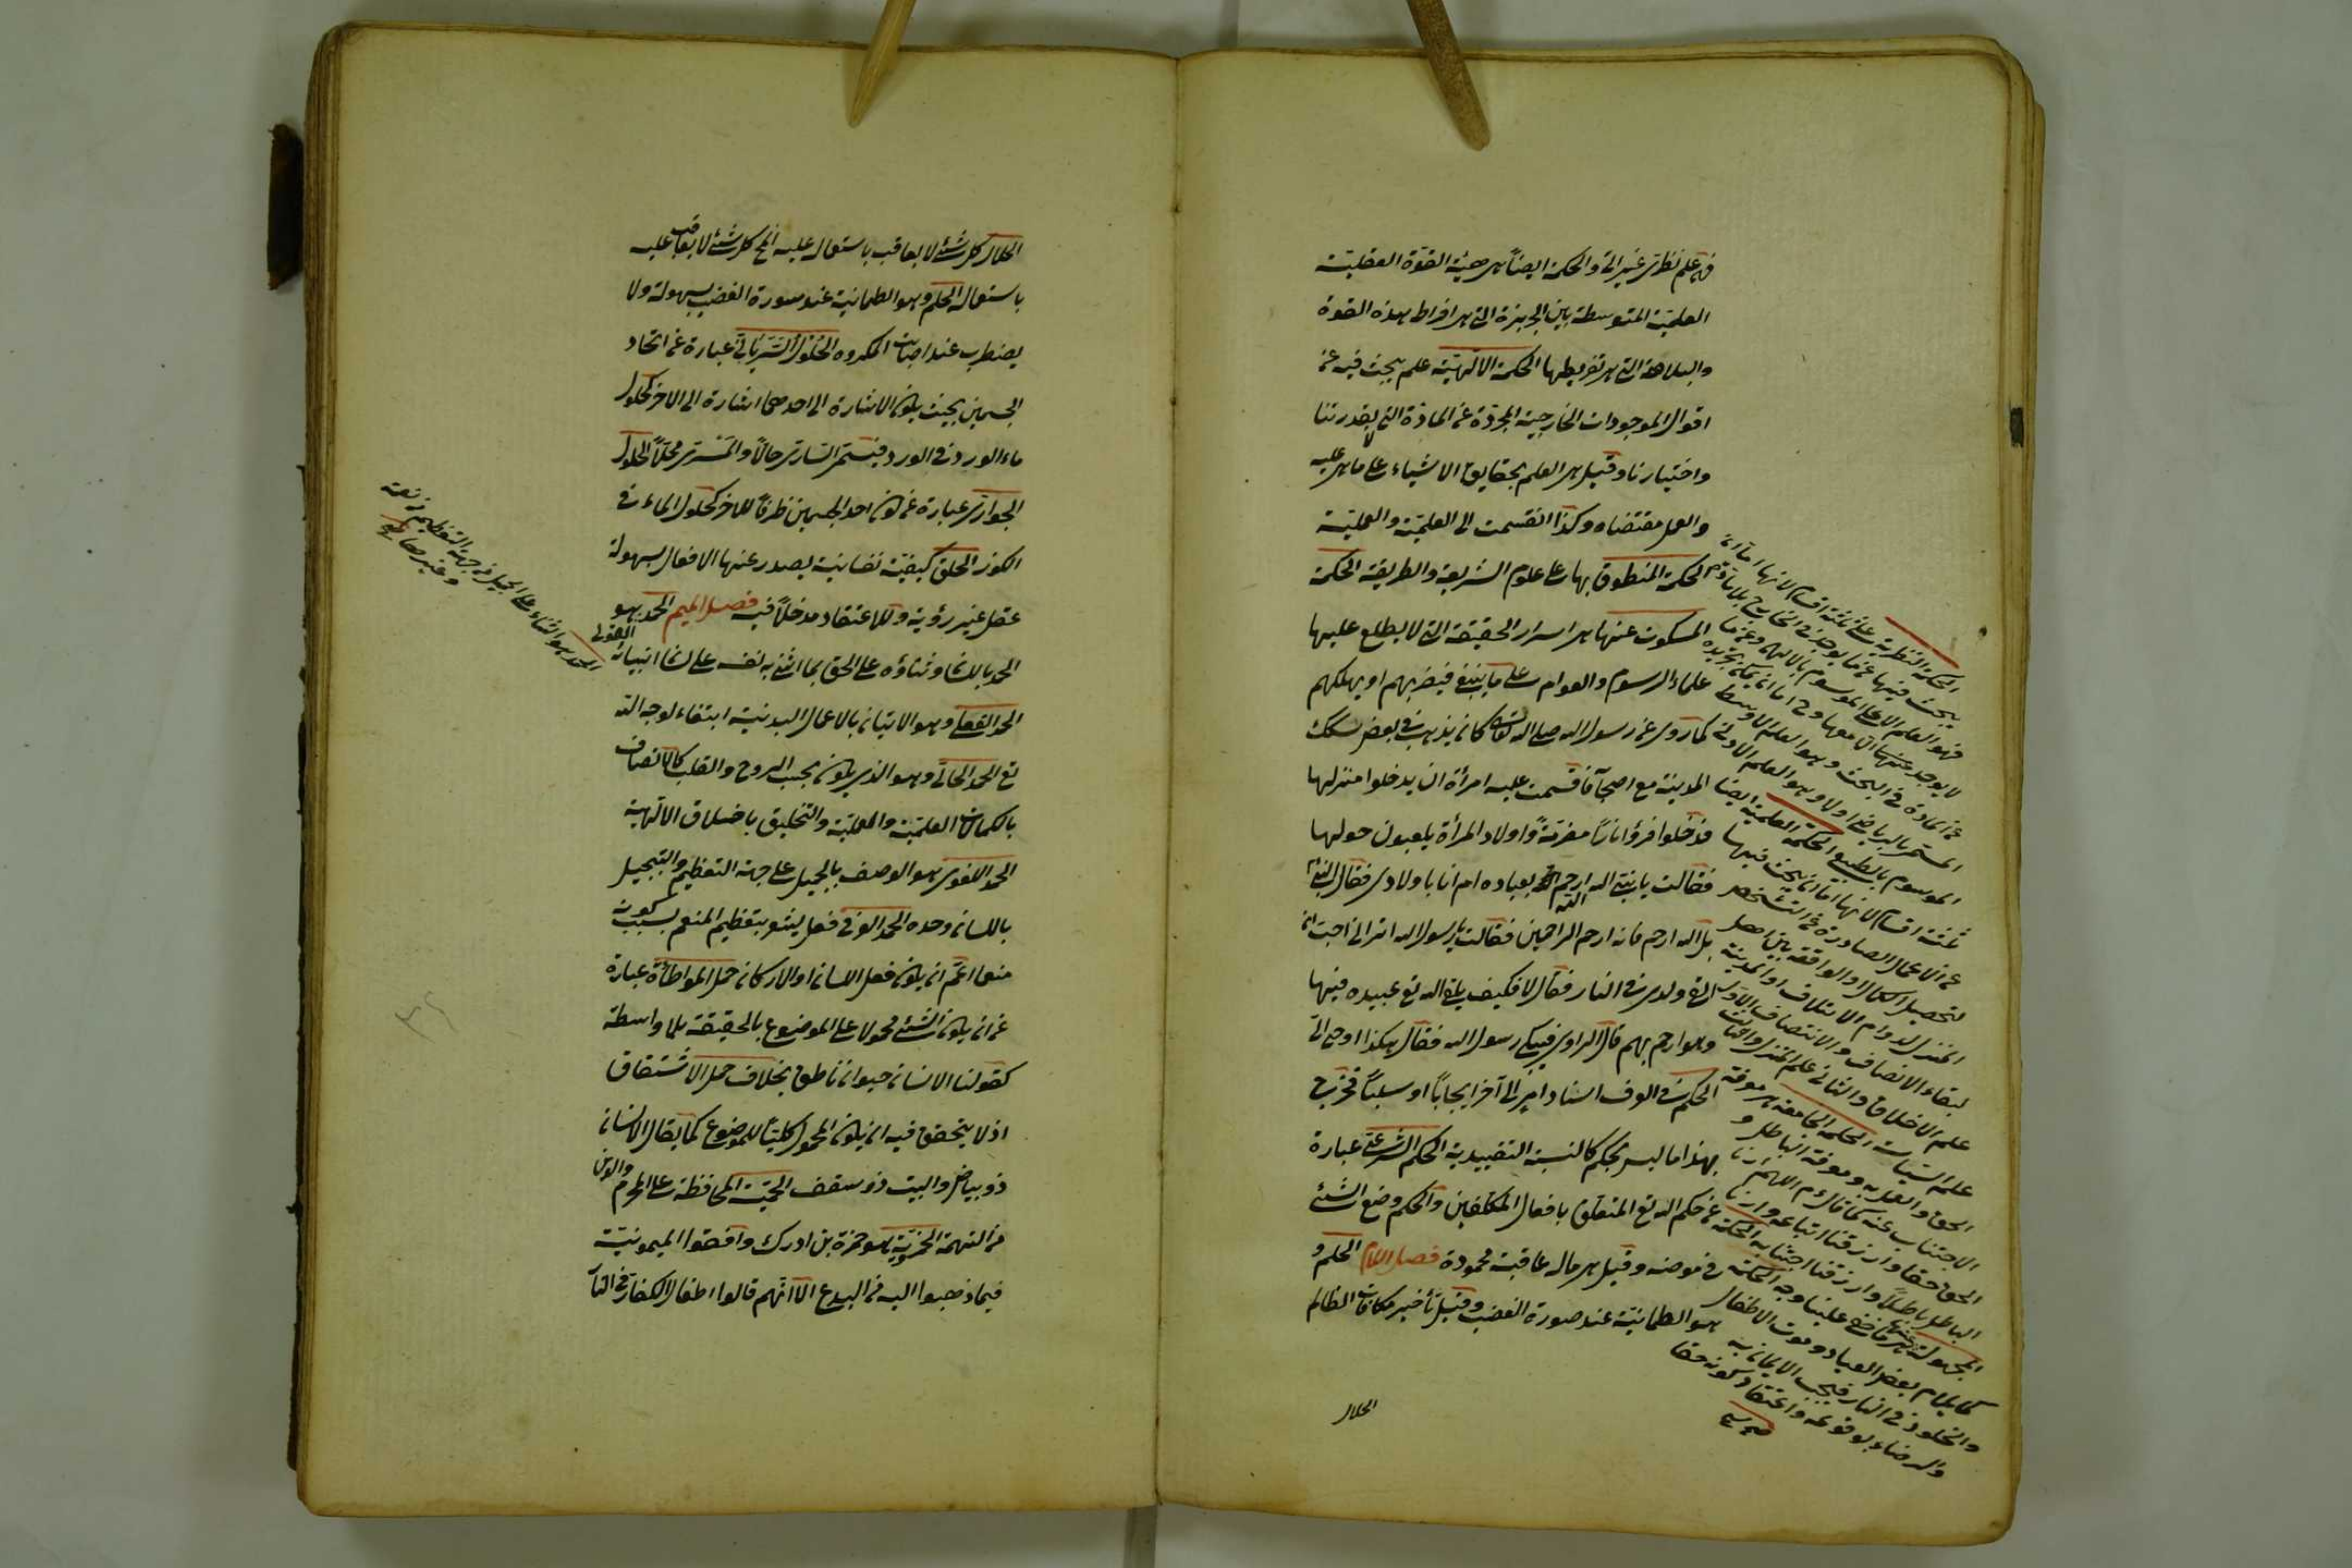 فهى علم نظرى غير آلى والحكمة ايضاً هى هيئة القوة العقلية
العلميّة المتوسطة بين الجربزة التى هى افراط هذه القوة
والبلاهة التى هى تفريطها الحكمة الآلهيّة علم يبحث فيه عن
احوال الموجودات الخارجية المجردة عن المادّة التى لا بقدرتنا
واختيارنا وقيل هى العلم بحقايق الاشياء على ما هى عليه
والعمل مقتضاه وكذا انقسمت الى العلميّة والعمليّة
الحكمة المنطوق بها هى علوم الشريعة والطريقة الحكمة
المسكوت عنها هى اسرار الحقيقة التى لا يطلع عليها
علماء الرسوم والعوام على ما ينبغى فيضربهم او يهلكهم
كما روى عن رسول الله صلى الله تعالى كان يذهب فى بعض سكك
المدينة مع اصحابه فاقسمت عليه امرأة ان يدخلوا منزلها
فدخلوا فرؤا ناراً مضرمةً واولاد المرأة يلعبون حولها
فقالت يا نبى الله الله ارحم بعباده ام انا باولادى فقال النبى
بل الله ارحم فانه ارحم الراحمين فقالت يا رسول الله اترانى احب ان
القى ولدى فى النار فقال لا فكيف يلقى الله تع عبيده فيها
وهو ارحم بهم قال الراوى فبكى رسول الله فقال هكذا اوحى الىّ
الحكم فى العرف اسناد امر الى آخر ايجاباً او سلباً فخرج
بهذا ما ليس بحكم كالنسبة التقييدية الحكم الشرعىّ عبارة
عن حكم الله تع المتعلق بافعال المكلفين والحكم وضع الشئ
فى موضعه وقيل هى ماله عاقبة محمودة فصل اللام الحلم و
هو الطمانيّة عند صورة الغضب وقيل تأخير مكافات الظالم
الحلال
الحكمة النظرية على ثلثة اقسام لانها اما ان
يبحث فيها عما يوجد فى الخارج بلا مادة
فهو العلم الاعلى الموسوم بالالهى وعما
لا يوجد عنها معها وح اما ان يمكن تجريده
عن المادة فى البحث وهو العلم الاوسط
المستمى بالرياضى اولا وهو العلم الادنى
الموسوم بالطبيعى الحكمة العلمية ايضا
ثلثة اقسام لانها اما ان يبحث فيها
عن الاعمال الصادرة عن الشخص
لتحصيل الكمال او الواقعة بين اهل
المنزل لدوام الائتلاف او المدينة
لبقاء الانصاف والانتصاف الاول
علم الاخلاق والثانى علم المنزل والثالث
علم السياسة الحكمة الجامعة هى معرفة
الحق والعمل به ومعرفة الباطل و
الاجتناب عنه كما قال عم اللهم ارنا
الحق حقا وارزقنا اتباعه وارنا
الباطل باطلاً وارزقنا اجتنابه الحكمة
المجهولة عندنا هى ما خفى علينا وجه الحكمة
كايلام بعض العباد وموت الاطفال
والخلود فى النار فيجب الايمان به
والرضاء بوقوعه واعتقاد كونه حقا
الحلال كل شئ لا يعاقب باستعماله عليه الخ كل شئ لا يعاقب عليه
باستعماله الحلم وهو الطمانية عند سورة الغضب بسهولة ولا
يضطرب عند اصابت المكروه الحلول السّريانىّ عبارة عن اتحاد
الجسمين بحيث يكون الاشارة الى احدهما اشارة الى الاخر كحلول
ماء الورد فى الورد فيسمى السارى حالاً والمسرى محلاً الحلول
الجوارى عبارة عن كون احد الجسمين ظرفاً للاخر كحلول الماء فى
الكوز الخلق كيفيّة نفسانية يصدر عنها الافعال بسهولة
عقل غير رؤية وللاعتقاد مدخلاً فيه فصل الميم الحمد هو
القولى
الحمد باللسان وثناؤه على الحق بما اثنى به نفسه على لسان انبيائه
الحمد الفعلى وهو الاتيان بالاعمال البدنية ابتغاء لوجه الله
تع الحمد الحالىّ وهو الذى يكون بحسب الروح والقلب كالاتصاف
بالكمالات العلميّة والعمليّة والتخليق باخلاق الالهية
الحمد اللغوى هو الوصف بالجميل على جهة التعظيم والتبجيل
باللسان وحده الحمد العرفى فعل يشعر بتعظيم المنعم بسبب كونه
منعما اعمّ ان يكون فعل اللسان او الاركان حمل المواطأة عبارة
عن ان يكون الشئ محمولا على الموضوع بالحقيقة بلا واسطة
كقولنا الانسان حيوان ناطق بخلاف حمل الاشتقاق
اذ لا يتحقق فيه ان يكون المحمول كليّاً للموضوع كما يقال الانسان
ذو بياض والبيت ذو سقف الحميّة المحافظة على المحرم والدين
من التهمة الحمزيّة هو حمزة بن ادرك وافقوا الميمونيّة
فيما ذهبوا اليه من البدع الّا انّهم قالوا اطفال الكفار فى النا
الحمد هو الثناء على الجميل من جهة التعظيم من نعمة
وغيرها